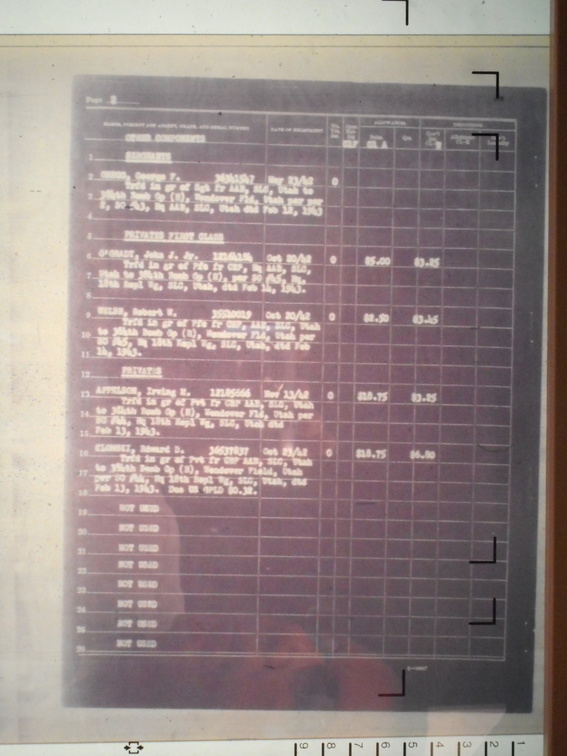 Page 2
NAMES, PRESENT AND ABSENT, GRADE, AND SERIAL NUMBER DATE OF ENLISTMENT ALLOWANCES
OTHER COMPONENTS CL A
1 SERGEANTS
2 George F. Nov 23/42 0
Trfd in gr of Sgt fr AAB, SLC, Utah to
3 384th Bomb Gp (H), Wendover Fld, Utah per par
AAB, SLC, Utah dtd Feb 12, 1943
4
5 PRIVATES FIRST CLASS
6 O'GRADY, John J. Jr. Oct 20/42 0 $5.00 $3.25
Trfd in gr of Pfc fr CRP, Hq AAB, SLC,
7 Utah to 384th Bomb Gp (H), per SO #45, Hq,
18th Repl Wg, SLC, Utah, dtd Feb 14, 1943.
8
9 WELSH, Robert W. 35510019 Oct 20/42 0 $2.50 $3.45
Trfd in gr of Pfc fr CRP, AAB, SLC, Utah
10 to 384th Bomb Gp (H), Wendover Fld, Utah per
SO #45, Hq 18th Repl Wg, SLC, Utah, dtd Feb
11 14, 1943.
12 PRIVATES
13 APPELSON, Irving M. 12185666 Nov 13/42 0 $18.75 $3.25
Trfd in gr of Pvt fr CRP AAB, SLC, Utah
14 to 384th Bomb Gp (H), Wendover Fld, Utah per
SO #44, Hq 18th Repl Wg, SLC, Utah dtd
15 Feb 13, 1943.
16 Edward D. 36637837 Oct 23/42 0 $18.75 $6.80
Trfd in gr of Pvt fr CRP AAB, SLC, Utah
17 to 384th Bomb Gp (H), Wendover Field, Utah
per SO #44, Hq 18th Repl Wg, SLC, Utah, dtd
18 Feb 13, 1943. Due US QPLD $0.32.
19 NOT USED
20 NOT USED
21 NOT USED
22 NOT USED
23 NOT USED
24 NOT USED
25 NOT USED
26 NOT USED
9 8 7 6 5 4 3 2 1